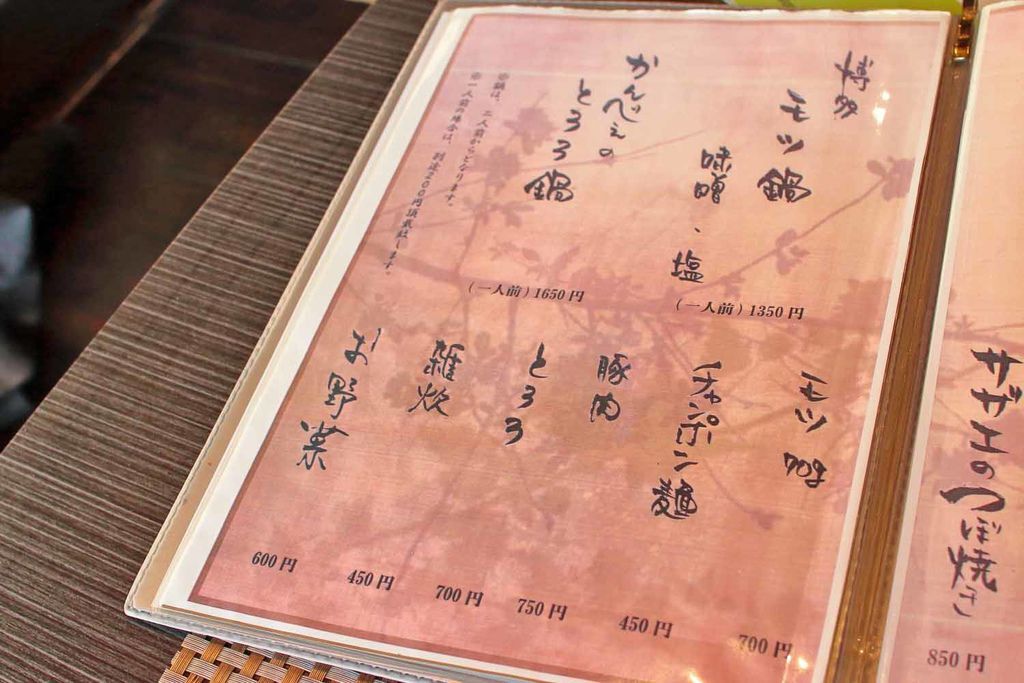 博多
モツ鍋
味噌、塩
(一人前)1350円
かんべえの
とろろ鍋
(一人前)1650円
※鍋は、二人前からとなります。
※一人前の場合は、別途200円頂戴致します。
モツ 70g
700円
チャンポン麺
450円
豚肉
750円
とろろ
700円
雑炊
450円
お野菜
600円
サザエのつぼ焼き
850円